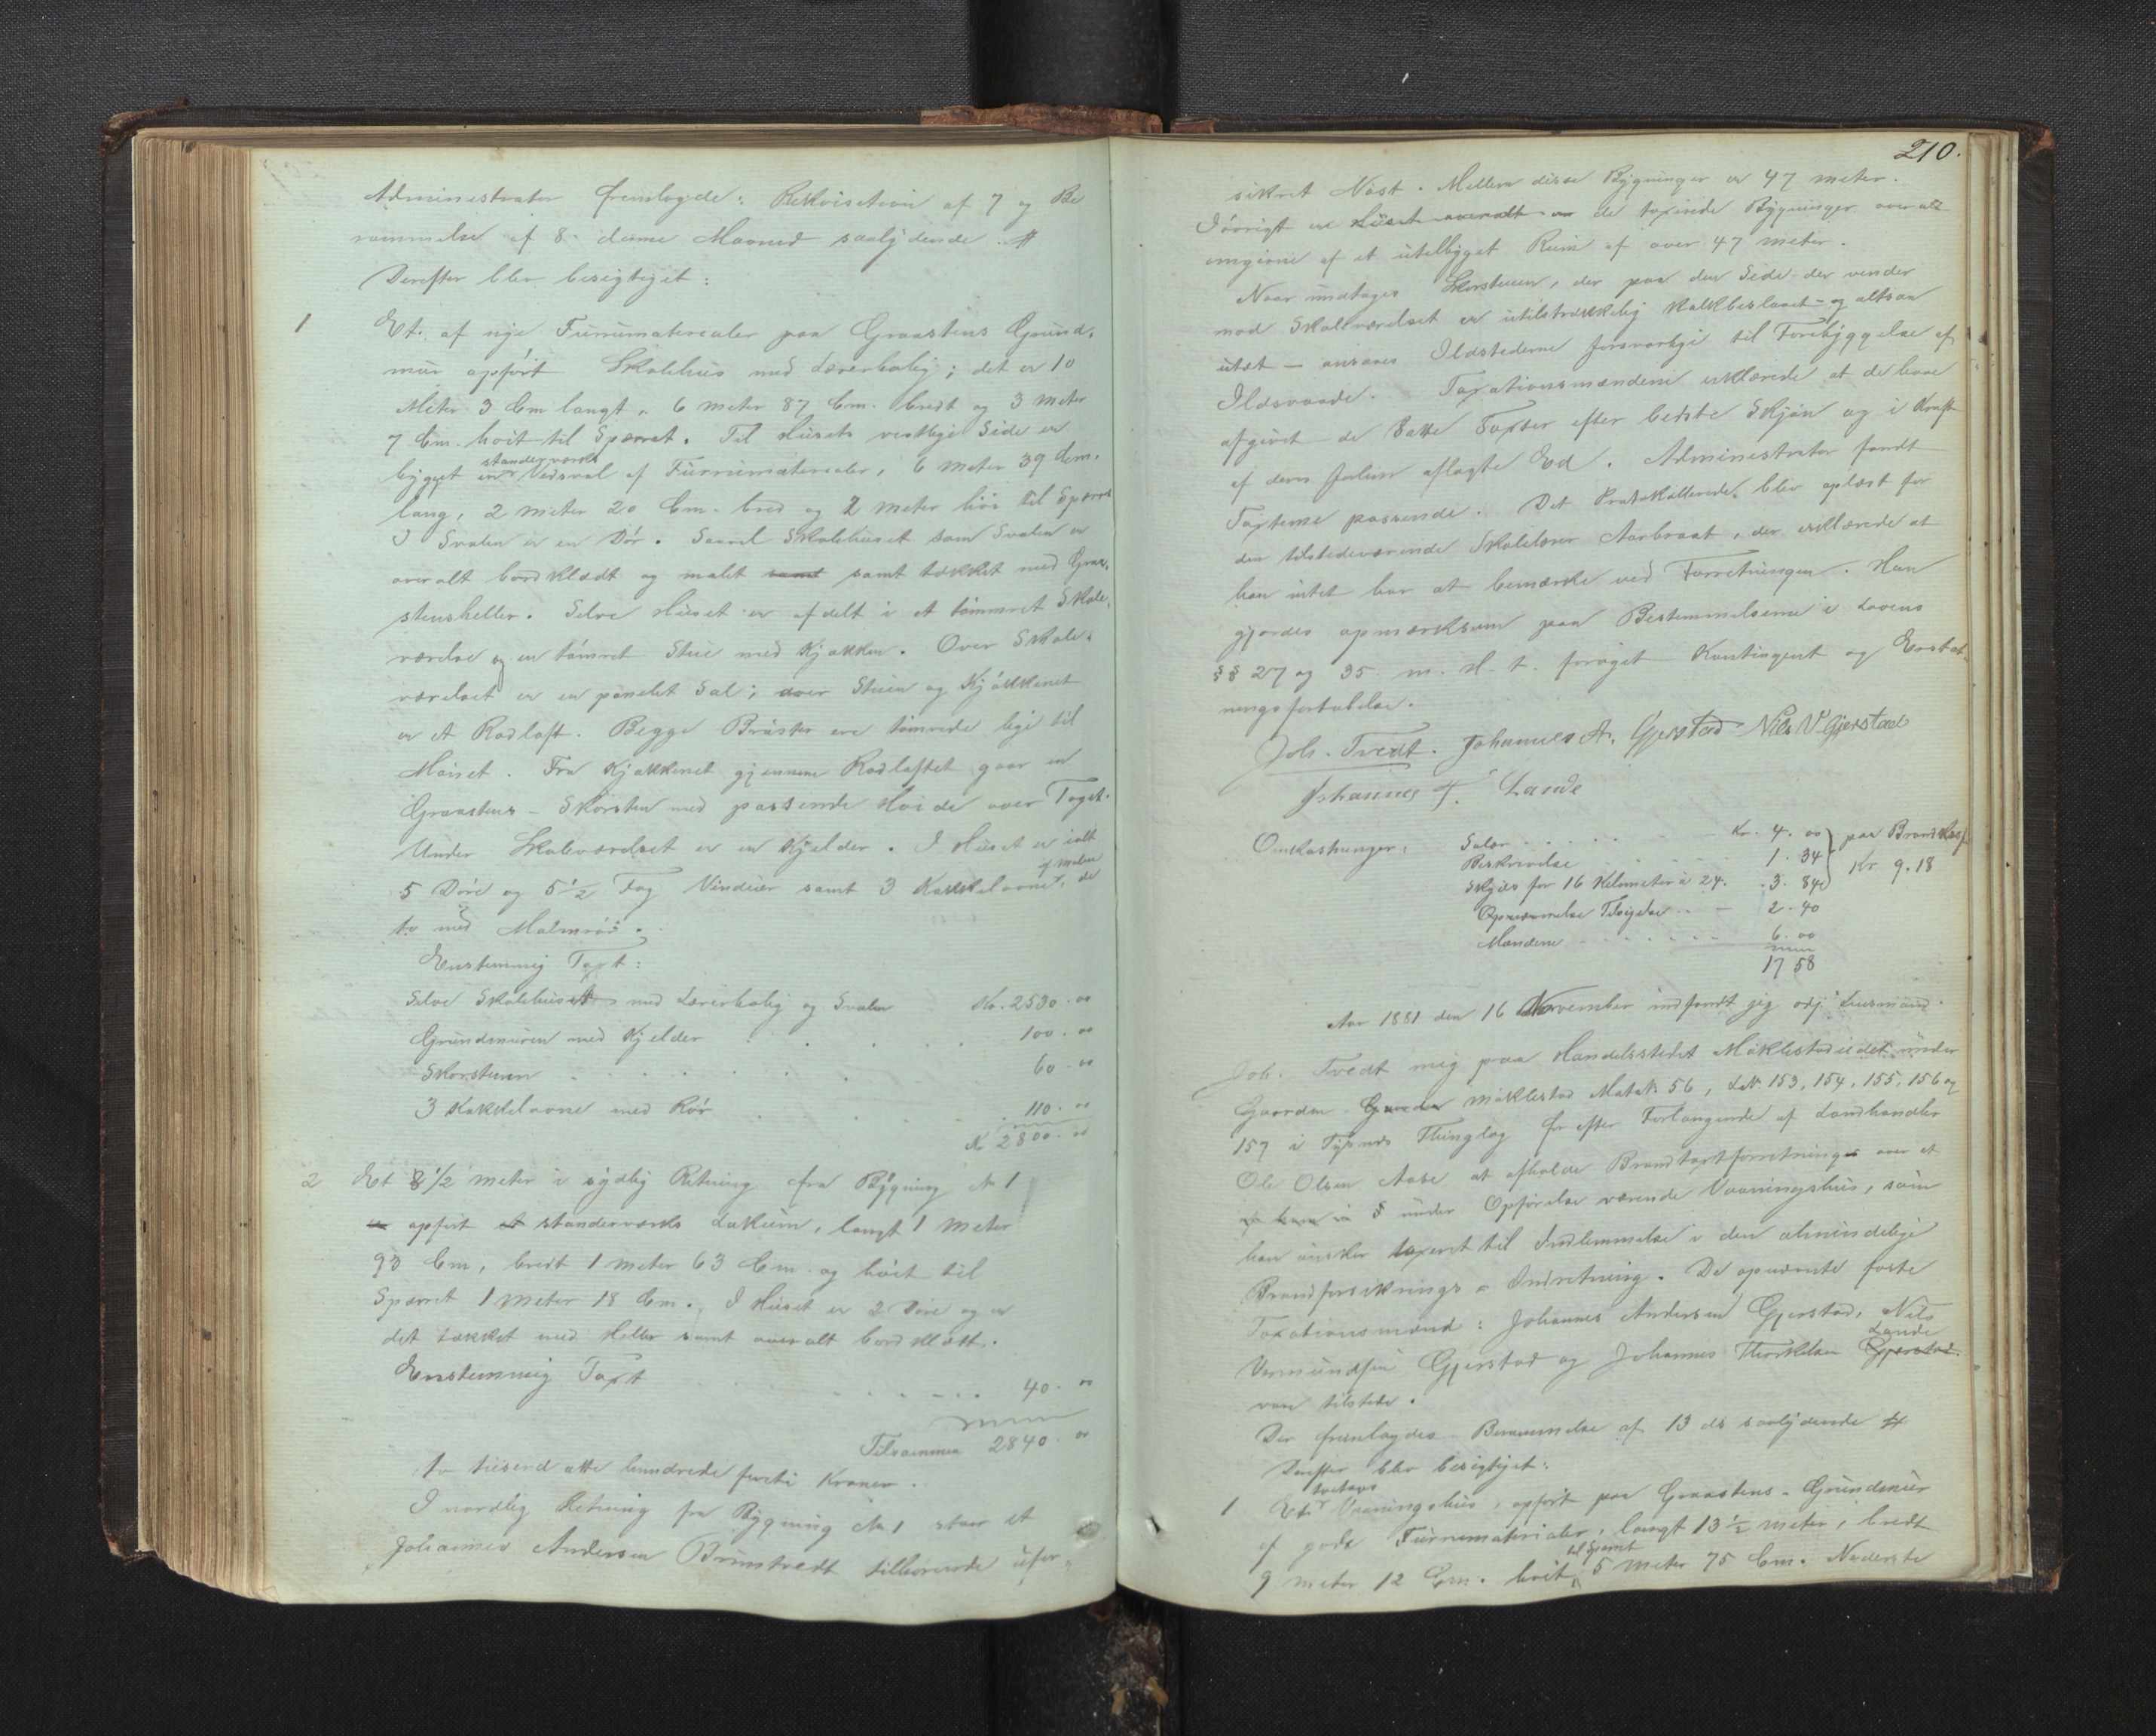 Administrator fremlagde: Rekvisition af 7 og Be
rammelse af 8 denne Maaned saalydende #
Derefter blev besigtiget:
1 Et af nye Furumaterialer paa Graastens Grund-
mur opført Skolehus med Lærerbolig; det er 10
Meter 3 Cm langt, 6 meter 87 Cm. bredt og 3 meter
7 Cm. høit til Sperret. Til Husets vestlige Side er
bygget en standerværks Vedsval af Furumaterialer, 6 meter 39 Cm.
lang, 2 meter 20 Cm. bred og 2 meter høi til Sperret
I Svalen er en Dør. Saavel Skolehuset som Svalen er
overalt bordklædt og malet samt samt tækket med Graa-
stensheller. Selve Huset er afdelt i et tømmret Skole-
værelse og en tømret Stue med Kjøkken. Over Skole-
værelset er en panelet Sal; over Stuen og Kjøkkenet
er et Rodloft. Begge Bruster ere tømrede lige til
Mønet. Fra Kjøkkenet gjennem Rodloftet gaar en
Graastens-Skorsten med passende Høide over Taget.
Under Skoleværelset er en Kjelder. I Huset er ialt
5 Døre og 5 1/2 Fag Vinduer samt 3 Kakkelovne af malm, de
to med Malmrør.
Enstemmig Taxt:
Selve Skolehuset med Lærerbolig og Svalen Kr. 2530.00
Grundmuren med Kjelder . . . . 100.00
Skorstenen . . . . . . 60.00
3 Kakkelovne med Rør . . . 110.00
Kr 2800.00
2 Et 8 1/2 meter i sydlig Retning fra Bygning No 1
er opført et standerværks Lokum, langt 1 meter
93 Cm, bredt 1 meter 63 Cm. og høit til
Sperret 1 meter 18 Cm. I Huset er 2 Døre og er
det tækket med Heller samt overalt bordklædt.
Enstemmig Taxt . . . . . . 40.00
Tilsammen 2840.00
to tusend otte hundrede firti Kroner.
I nordlig Retning fra Bygning No 1 staar et
Johannes Andersen Brimtvedt tilhørende ufor-
210.
sikret Nøst. Mellem disse Bygninger er 47 meter.
Iøvrigt er Huset overalt er de taxerede Bygninger overalt
omgivne af et utilbygget Rum af over 47 meter.
Naar undtages Skorstenen, der paa den Side der vender
mod Skoleværelset er utilstrækkelig kalkbeslaaet- og altsaa
utæt - ansaaes Ildstederne forsvarlige til Forebyggelse af
Ildsvaade. Taxationsmændene erklærede at de have
afgivet de satte Taxter efter bedste Skjøn og i Kraft
af deres forhen aflagte Ed. Administrator fandt
Taxterne passende. Det Protokollerede blev oplæst for
den tilstedeværende Skolelærer Aarbraat, der erklærede at
han intet har at bemærke ved Forretningen. Han
gjordes opmærksom paa Bestemmelserne i Lovens
§§ 27 og 35 m. H. t. forøget Kontingent og Erstat-
ningsfortabelse.
Joh. Tvedt. Johannes A. Gjerstad Nils V Gjerstad
Johannes T. Lande
Omkostninger: Salær . . . . . Kr. 4.00 } paa Brandkas
Beskrivelse . . . . 1.34
Skyds for 16 Kilometer à 24. . 3.84 Kr 9.18
Opnævnelse Tilsigelse . . - 2.40
Mændene . . . . . . 6.00
17 58
Aar 1881 den 16 November indfandt jeg  Lensmand
Joh. Tvedt mig paa Handelsstedet Møklestadiedet under
Gaarden Gaarden Møklestad Matr. 56, LNr. 153, 154, 155, 156 og
157 i Tysnes Thinglag for efter Forlangende af Landhandler
Ole Olsen Aase at afholde Brandtaxtforretning over et
 § under Opførelse værende Vaaningshus, som
han ønsker taxeret til Indlemmelse i den almindelige
Brandforsikrings-Indretning. De opnævnte faste
Taxationsmænd: Johannes Andersen Gjerstad, Nils
Vermundsen Gjerstad og Johannes Thorkelsen Gjerstad Lande
vare tilstede.
Der fremlagdes Berammelse af 13 ds saalydende #
Derefter blev besigtiget:
1 Et toetages Vaaningshus, opført paa Graastens-Grundmur
af gode Furrumaterialer, langt 13 1/2 meter, bredt
9 meter 12 Cm. høit til Sperret 5 meter 75 Cm. Nederste